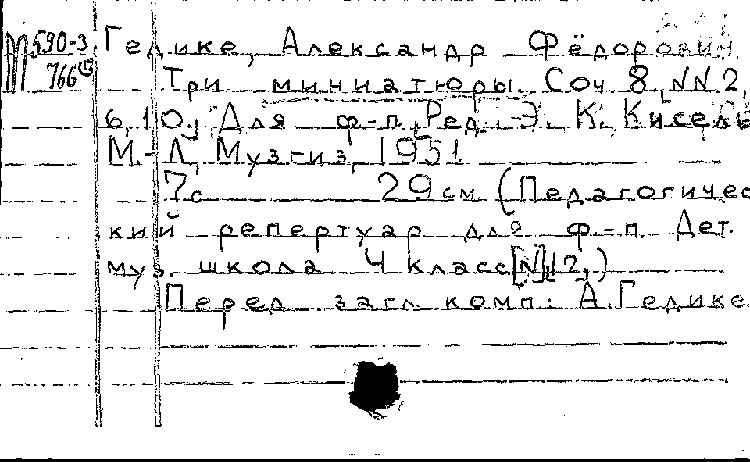 М 590-3
766
Гедике, Александр Фёдорович
Три миниатюры. Соч 8, NN 2,
6, 10. Для ф-п. Ред. Э. К. Кисель
М.-Л, Муз-из, 1951
7с 29 см (Педагогичес
кий репертуар для ф-п Дет.
муз. школа 4 класс [N]12,)
Перед загл. комп: А. Гедике